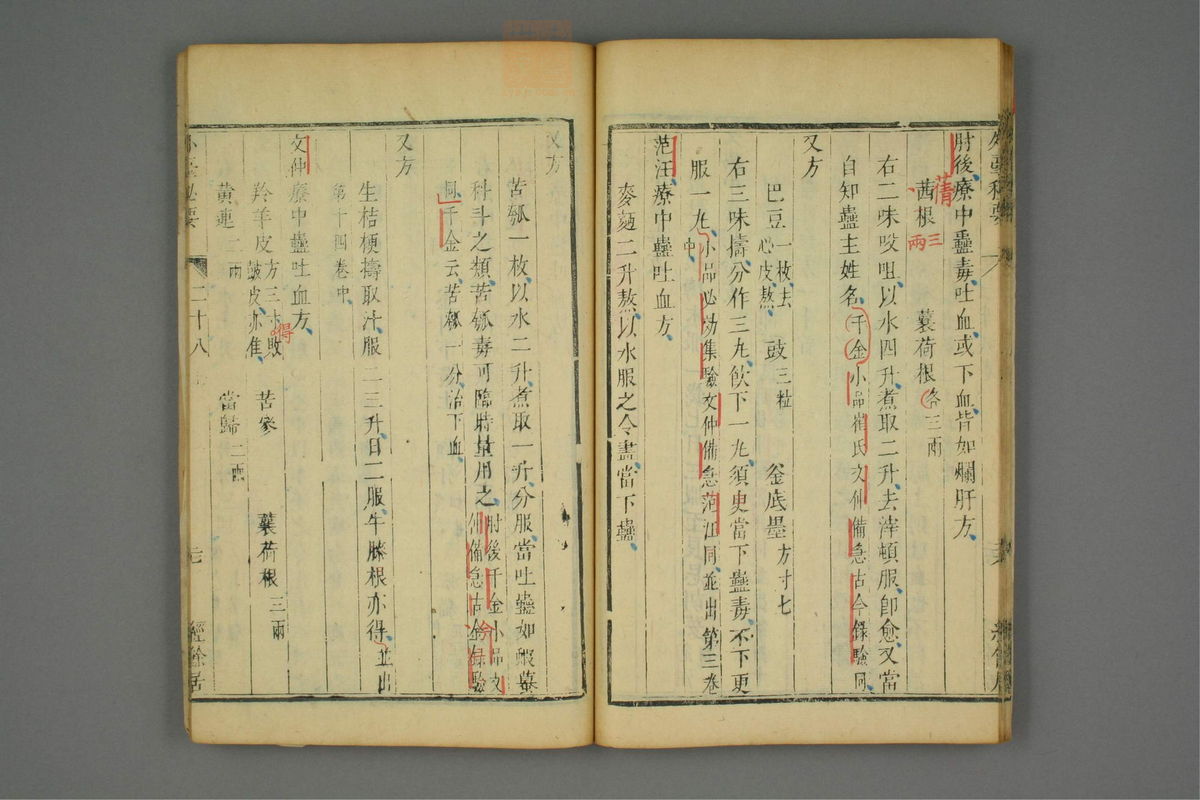 外臺秘要
肘後療中蠱毒吐血或下血皆如爛肝方
茜根 三兩 蘘荷根 各三兩
蒨
右二味㕮咀以水四升煮取二升去滓頓服即愈又當
自知蠱主姓名 千金小品崔氏文仲備急古今錄驗同
又方
巴豆 一枚去心皮熬 豉 三粒 釜底墨 方寸七
右三味擣分作三丸飲下一丸須臾當下蠱毒不下更
服一丸 小品必効集驗文仲備急范汪同並出第三卷中
范汪療中蠱吐血方
麥麪二升熬以水服之令盡當下蠱
又方
苦瓠一枚以水二升煮取一升分服當吐蠱如蝦蟇
科斗之類苦瓠毒可臨時量用之 肘後千金小品文仲備急古今錄驗
同千金云苦瓠一分治下血
又方
生桔梗擣取汁服二三升日二服牛膝根亦得 並出
第十四卷中
文仲療中蠱吐血方
羚羊皮 方三寸得敗鼓皮亦佳 苦參 蘘荷根 三兩
黃連 二兩 當歸 二兩
外臺秘要
二十八
經餘居